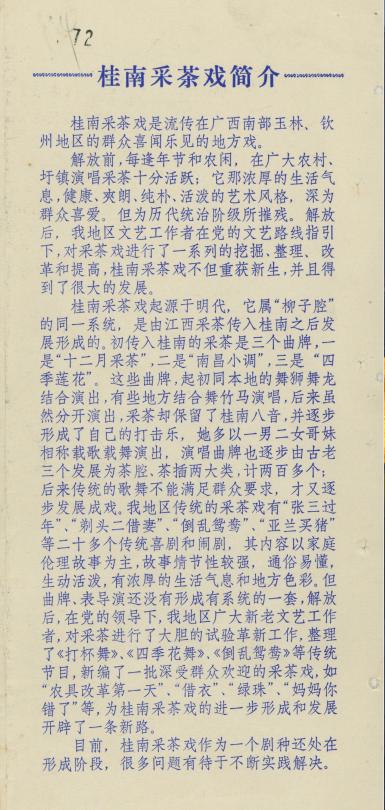 72
桂南采茶戏简介
桂南采茶戏是流传在广西南部玉林、钦
州地区的群众喜闻乐见的地方戏。
解放前，每逢年节和农闲，在广大农村、
圩镇演唱采茶十分活跃；它那浓厚的生活气
息，健康、爽朗、纯朴、活泼的艺术风格，深为
群众喜爱。但为历代统治阶级所摧残。解放
后，我地区文艺工作者在党的文艺路线指引
下，对采茶戏进行了一系列的挖掘、整理、改
革和提高，桂南采茶戏不但重获新生，并且得
到了很大的发展。
桂南采茶戏起源于明代，它属“柳子腔”
的同一系统，是由江西采茶传入桂南之后发
展形成的。初传入桂南的采茶是三个曲牌，一
是“十二月采茶”，二是“南昌小调”，三是“四
季莲花”。这些曲牌，起初同本地的舞狮舞龙
结合演出，有些地方结合舞竹马演唱，后来虽
然分开演出，采茶却保留了桂南八音，并逐步
形成了自己的打击乐，她多以一男二女哥妹
相称载歌载舞演出，演唱曲牌也逐步由古老
三个发展为茶腔、茶插两大类，计两百多个；
后来传统的歌舞不能满足群众要求，才又逐
步发展成戏。我地区传统的采茶戏有“张三过
年”、“剃头二借妻”、“倒乱鸳鸯”、“亚兰买猪”
等二十多个传统喜剧和闹剧，其内容以家庭
伦理故事为主，故事情节性较强，通俗易懂，
生动活泼，有浓厚的生活气息和地方色彩。但
曲牌、表导演还没有形成有系统的一套，解放
后，在党的领导下，我地区广大新老文艺工作
者，对采茶进行了大胆的试验革新工作，整理
了《打杯舞》、《四季花舞》、《倒乱鸳鸯》等传统
节目，新编了一批深受群众欢迎的采茶戏，如
“农具改革第一天”、“借衣”、“绿珠”、“妈妈你
错了”等，为桂南采茶戏的进一步形成和发展
开辟了一条新路。
目前，桂南采茶戏作为一个剧种还处在
形成阶段，很多问题有待于不断实践解决。